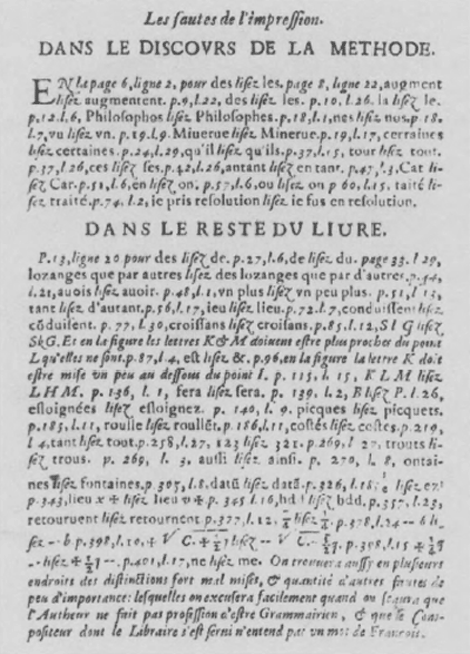 Les fautes de l'impression.
DANS LE DISCOVRS DE LA METHODE.
EN la page 6, ligne 2, pour des lisez les. page 8, ligne 22, augment
lisez augmentent. p.9, l.22, des lisez les. p.10, l.26. la lisez le.
p.12.l.6, Philosophos lisez Philosophes. p.18, l.1, nes lisez nos. p.18.
l.7, vu lisez vn. p.19.l.9. Miuerue lisez Minerue. p.19, l.17, cerraines
lisez certaines. p.24, l.29, qu'il lisez qu'ils. p.37, l.15, tour lisez tout.
p.37, l.26, ces lisez ses. p.42, l.26, antant lisez en tant. p.47, l.3. Cat li-
sez Car. p.51, l.6, én lisez on. p.57, l.6, ou lisez on p 60, l.15. taité li-
sez traité. p.74. l.2, ie pris resolution lisez ie fus en resolution.
DANS LE RESTE DU LIURE.
P.13, ligne 20 pour des lisez de. p.27, l.6, de lisez du. page 33. l 29,
lozanges que par autres lisez des lozanges que par d'autres. p.44,
l.21, auois lisez auoir. p.48, l.1, vn plus lisez vn peu plus. p.51, l 12,
tant lisez d'autant. p.56, l.17, ieu lisez lieu. p.72. l.7, conduissent lisez
cõduisent. p. 77, l.30, croissans lisez croisans. p.85. l.12, SI G lisez
SkG. Et en la figure les lettres K & M doiuent estre plus proches du point
L qu'elles ne sont. p.87, l.4, est lisez &. p.96, en la figure la lettre K doit
estre mise vn peu au dessous du point I. p. 115, l. 15, K L M lisez
L H M. p. 136, l. 1, fera lisez sera. p. 139, l. 2, B lisez P. l.26,
esloignées lisez esloignez. p. 140, l. 9. picques lisez picquets.
p.185, l.11, roulle lisez roullẽt. p.186, l.11, costés lisez costes. p.219,
l 4, tant lisez tout. p.258, l.27, 123 lisez 321. p.269, l 27, trouts li-
sez trous. p. 269, l. 3, aussi lisez ainsi. p. 270, l. 8, ontai-
nes lisez fontaines. p.305, l.8, datũ lisez datũ. p.326, l.18 lisez
p.343, lieu x + lisez lieu v + p. 345 l.16, lisez bdd. p.357, l.23,
retouruent lisez retournent p.377, l.12, lisez p.378, l.24 lisez
p.398, l.10, + lisez p.398, l.15 +
lisez + p.401, l.17, ne lisez me. On trouuera aussy en plusieurs
endroits des distinctions fort mal mises, & quantité d'autres fautes de
peu d'importance: lesquelles on excusera facilement quand on sçaura que
l'Autheur ne fait pas profession d'estre Grammairien, & que le Com-
positeur dont le Libraire s'est serui n'entend pas vn mot de François.